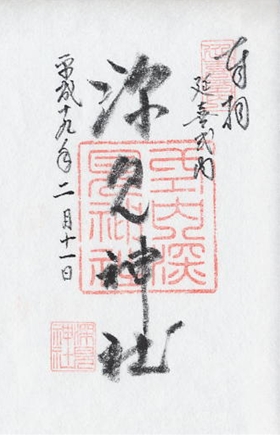 有相
延喜式内
深見神社
平成十九年二月十一日
式内深
見神社
深見
神社